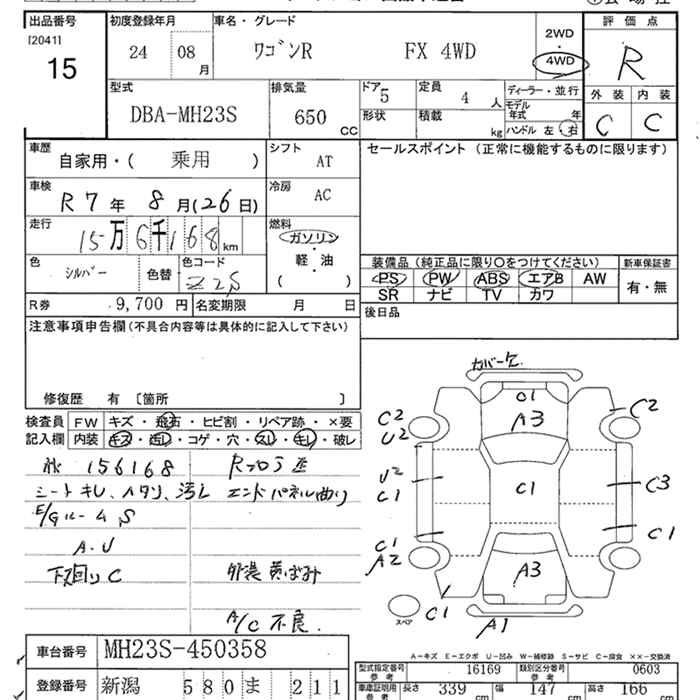 出品番号
[2041]
15
初度登録年月
24 08
月
車名・グレード
ワゴンR FX 4WD
2WD
4WD
評価点
R
外装 内装
C C
型式
DBA-MH23S
排気量
650
CC
ドア
5
形状
定員
4
人
積載
kg
ディーラー・並行
モデル
年式 年
ハンドル 左 右
車歴
自家用・( 乗用 )
シフト
AT
車検
R 7 年 8 月(26日)
冷房
AC
走行
15万6千168km
燃料
ガソリン
軽・油
( )
色
シルバー
色替
色コード
Z2S
R券 9,700 円
名変期限 月 日
セールスポイント (正常に機能するものに限ります)
装備品 (純正品に限り○をつけてください)
PS PW ABS エアB AW
SR ナビ TV カワ
新車保証書
有・無
後日品
注意事項申告欄(不具合内容等は具体的に記入して下さい)
修復歴 有 〔箇所 〕
検査員
記入欄
FW キズ・飛石・ヒビ割・リペア跡・×要
内装 キズ・汚レ・コゲ・穴・スレ・キレ・破レ
156168
シートキレ、ヘタリ、汚レ
E/Gルーム S
A.U
下廻り C
エンドパネル曲り
外装 黄ばみ
A/C 不良
カバーケ
C1
A3
C2
U2
C2
U2
C1
C1
C3
C1
A2
C1
A3
C1
A1
スペア
A-キズ E-エクボ U-凹み W-補修跡 S-サビ C-腐食 ××-交換済
車台番号
MH23S-450358
登録番号
新潟 580 ま 211
型式指定番号
参考
16169
類別区分番号
参考
0603
車庫証明用
参考
長さ 339 cm
幅 147 cm
高さ 166 cm